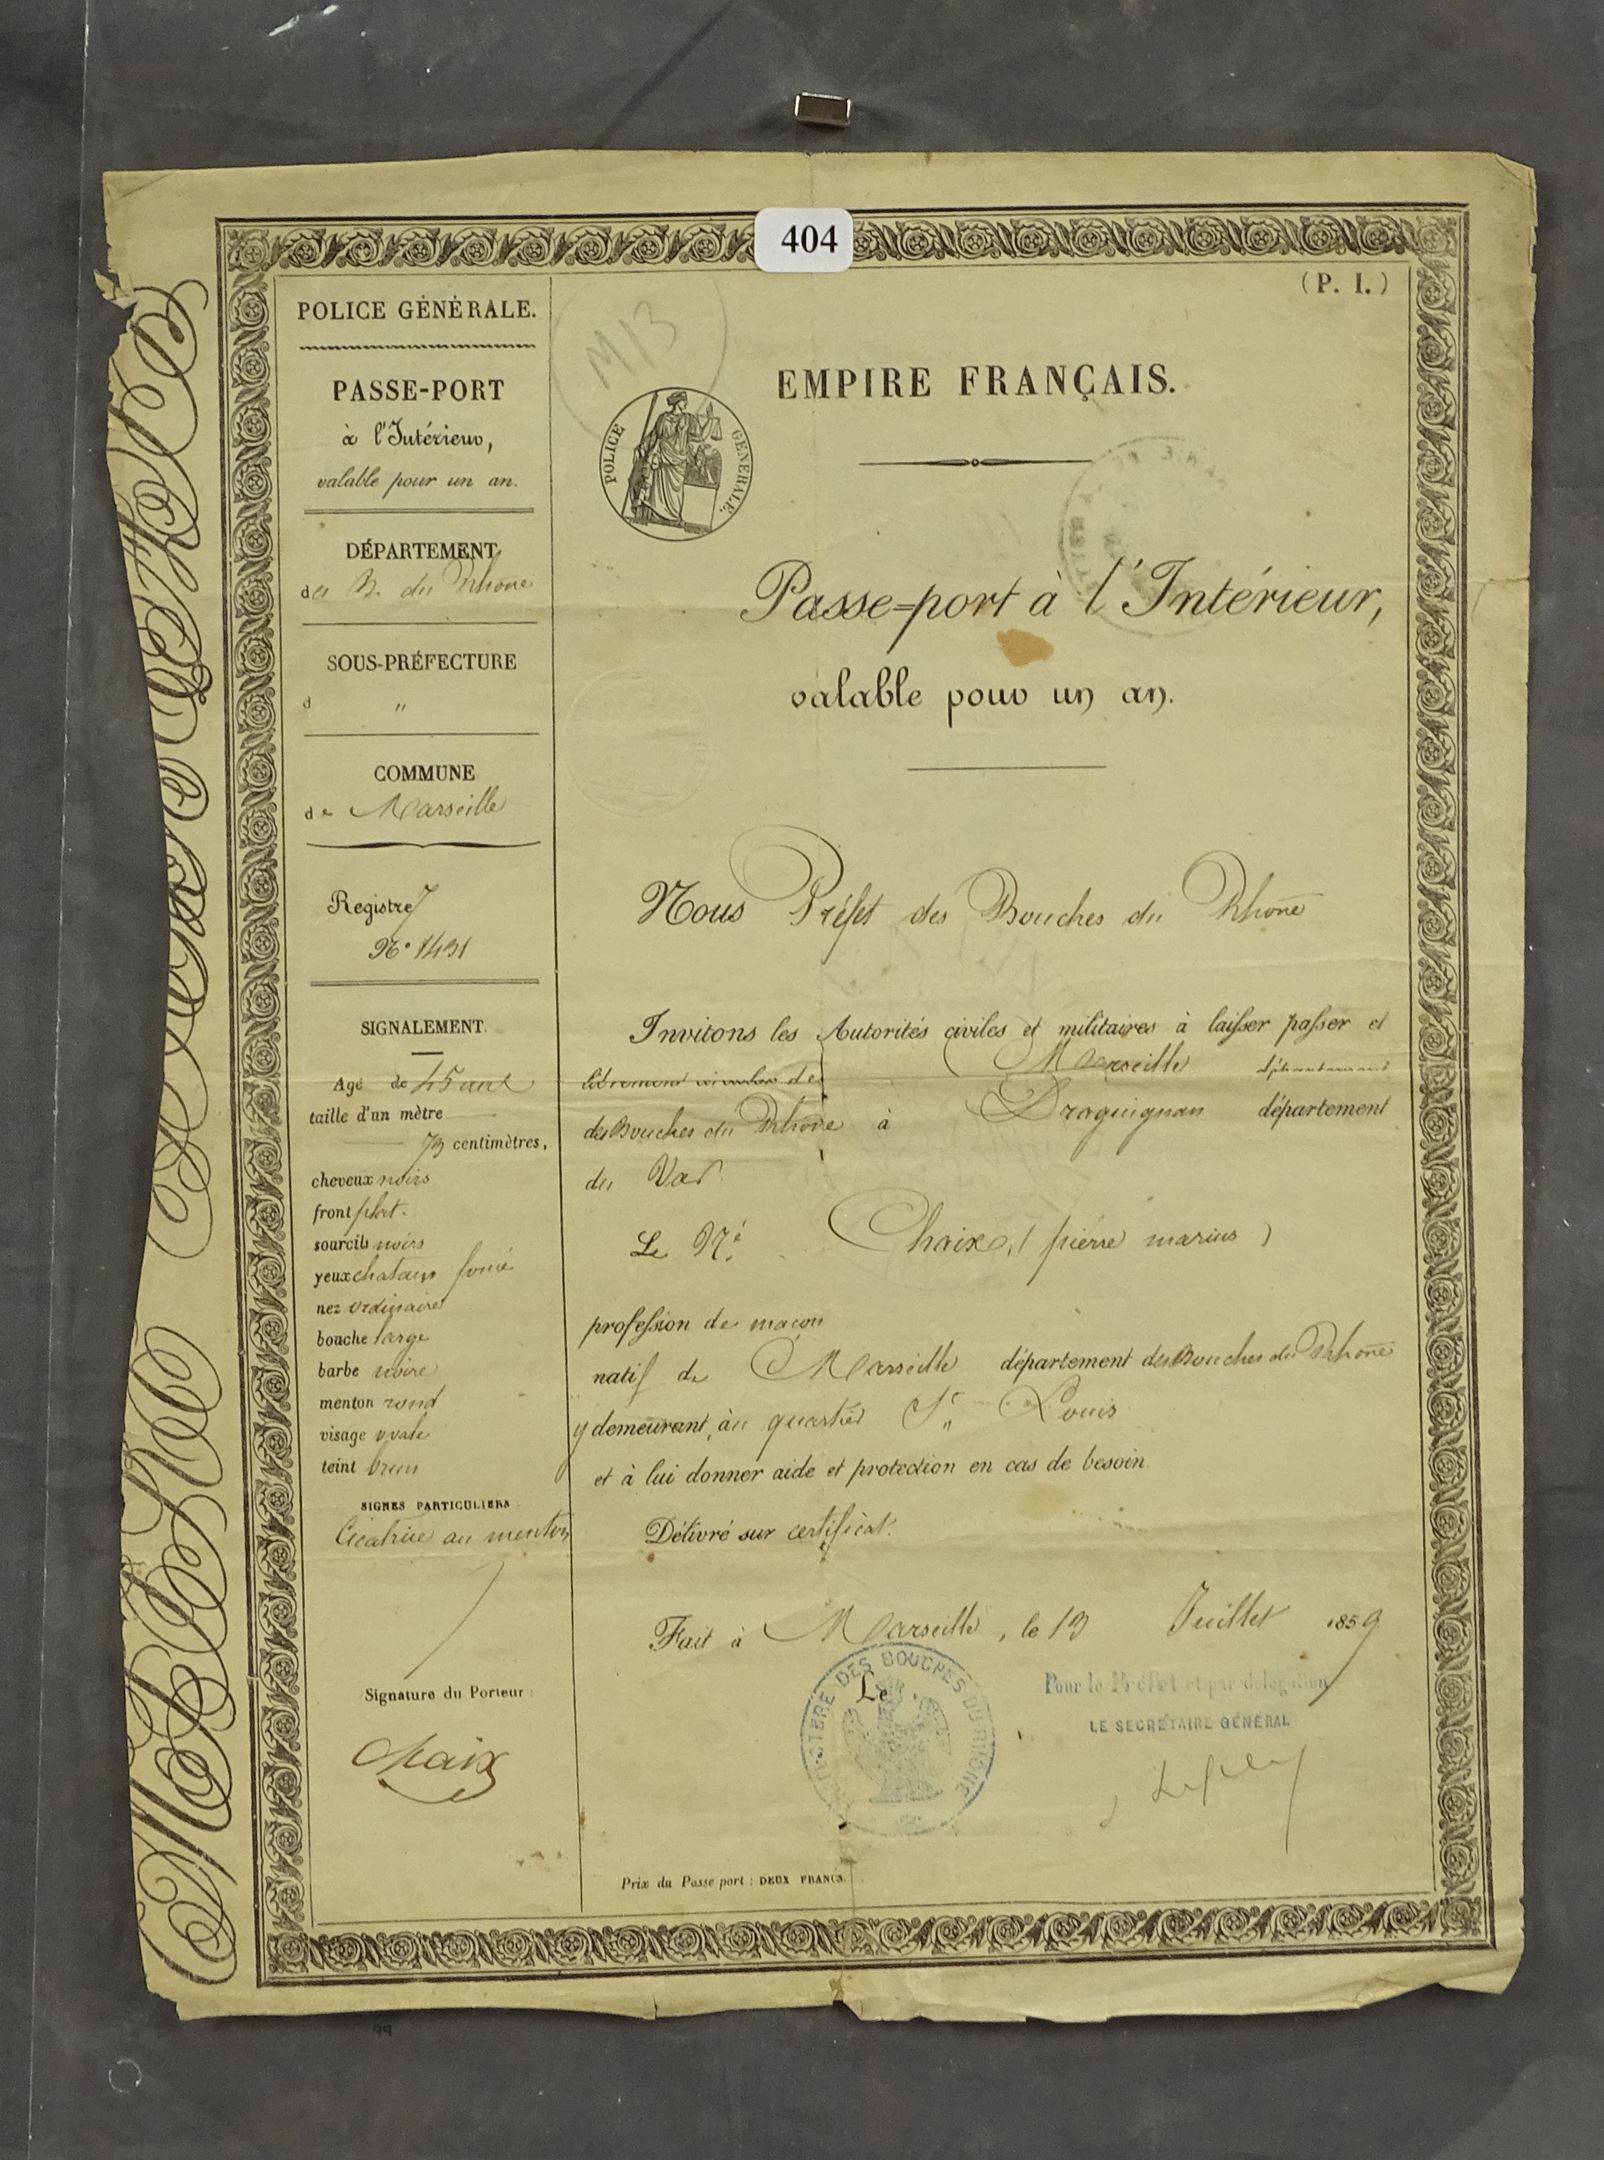 404
(P. I.)
POLICE GÉNÉRALE.
PASSE-PORT
à l'Intérieur,
valable pour un an.
DÉPARTEMENT
des B. du Rhône
SOUS-PRÉFECTURE
d "
COMMUNE
de Marseille
Registre 7
N° 1431
SIGNALEMENT.
Agé de 45 ans
taille d'un mètre
73 centimètres,
cheveux noirs
front plat.
sourcils noirs
yeux chatain foncé
nez ordinaire
bouche large
barbe noire
menton rond
visage ovale
teint brun
SIGNES PARTICULIERS
Cicatrice au menton
Signature du Porteur :
Chaix
M13
POLICE GÉNÉRALE.
EMPIRE FRANÇAIS.
Passe-port à l'Intérieur,
valable pour un an.
Nous Préfet des Bouches du Rhône
Invitons les Autorités civiles et militaires à laisser passer et
librement circuler de Marseille département
des Bouches du Rhône à Draguignan département
du Var
Le Né Chaix, (pierre marius)
profession de maçon
natif de Marseille département des Bouches du Rhône
y demeurant, au quartier St Louis
et à lui donner aide et protection en cas de besoin
Délivré sur certificat.
Fait à Marseille, le 13 Juillet 1859
Le
PRÉFECTURE DES BOUCHES DU RHÔNE
Pour le Préfet et par délégation
LE SECRÉTAIRE GÉNÉRAL
Prix du Passe port : DEUX FRANCS.